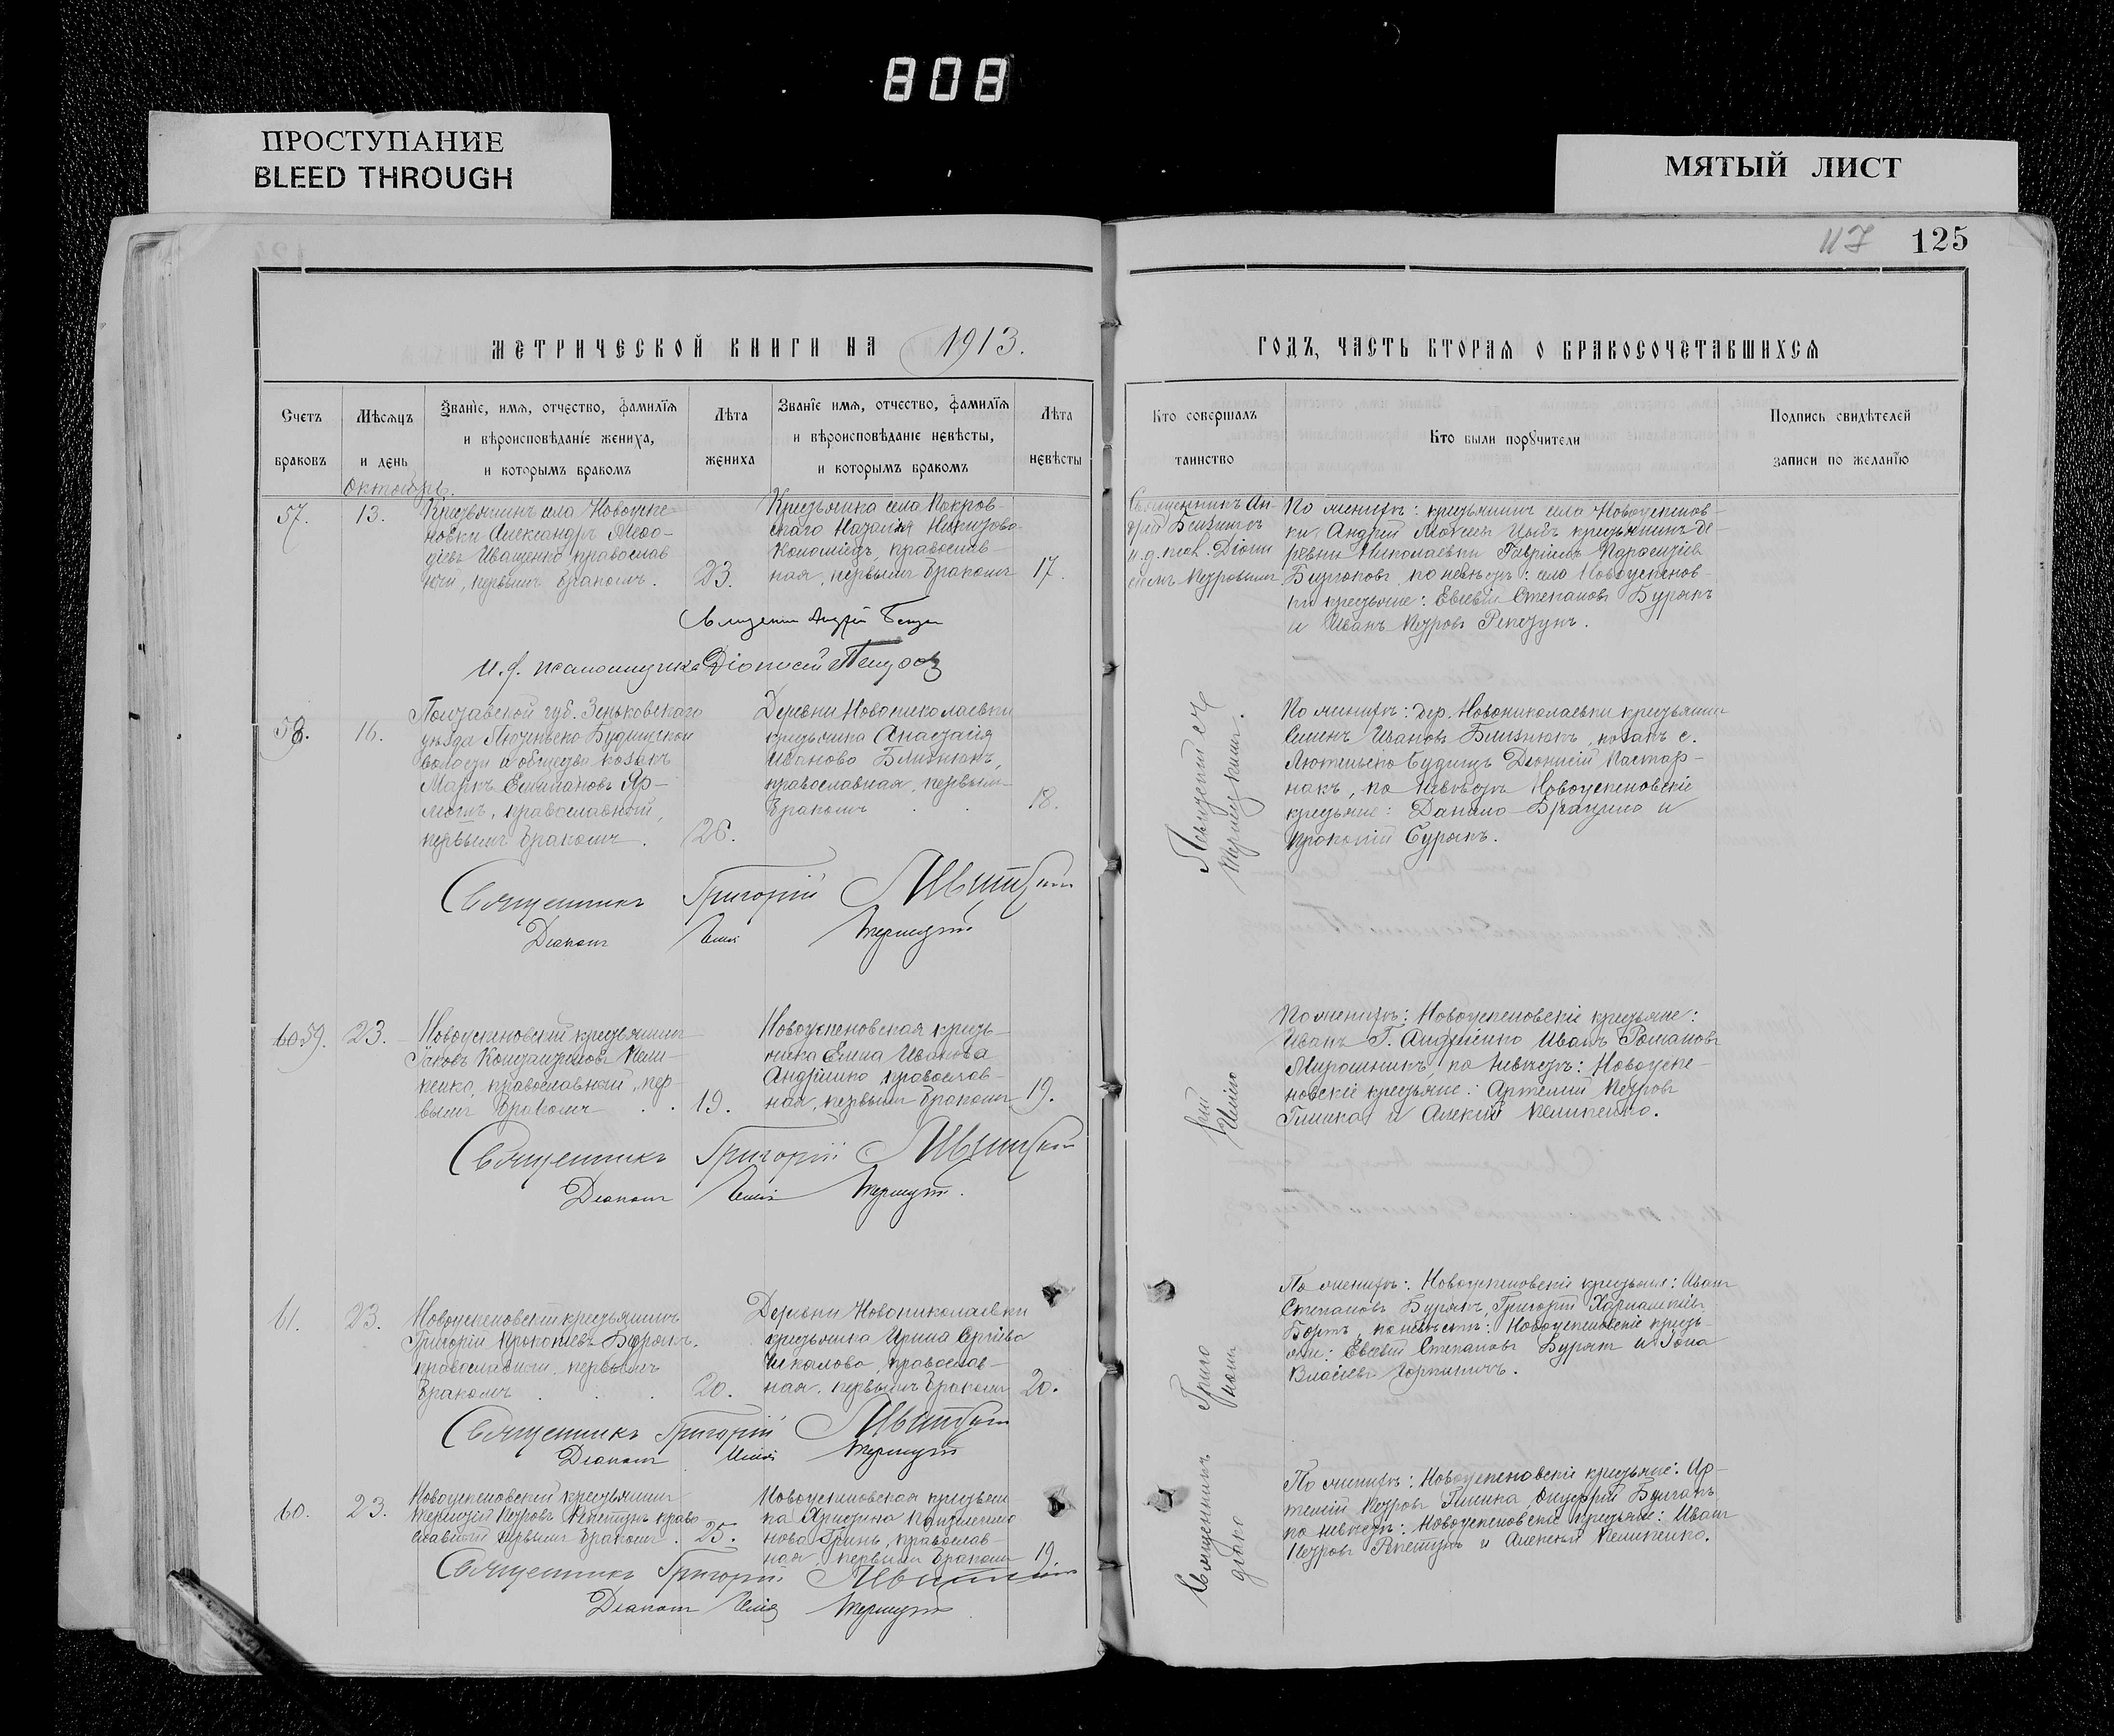 808
ПРОСТУПАНИЕ
BLEED THROUGH
МЯТЫЙ ЛИСТ
117 125
МЕТРИЧЕСКОЙ КНИГИ НА 1913.
ГОДЪ, ЧАСТЬ ВТОРАЯ О БРАКОСОЧЕТАВШИХСЯ
Счетъ
браковъ
Мѣсяцъ
и день
Званіе, имя, отчество, фамилія
и вѣроисповѣданіе жениха,
и которымъ бракомъ
Лѣта
жениха
Званіе имя, отчество, фамилія
и вѣроисповѣданіе невѣсты,
и которымъ бракомъ
Лѣта
невѣсты
Кто совершалъ
таинство
Кто были поручители
Подпись свидѣтелей
записи по желанію
Октябрь.
57.
13.
Крестьянинъ села Новоуспе-
новки Александръ Меѳо-
діевъ Иващенко, православ
ный, первымъ бракомъ.
23.
Крестьянка села Покров-
скаго Наталія
Коломіецъ, православ-
ная, первымъ бракомъ
17.
Священникъ Ан-
дрей
и.д. псал. Діони
сіемъ Петровымъ
По женихѣ: крестьянинъ села Новоуспенов-
ки Андрей Моисеевъ крестьянинъ де-
ревни Николаевки Гавріилъ
по невѣстѣ: села Новоуспенов-
ки крестьяне: Евсевій Степановъ Бурякъ
и Иванъ Петровъ Репетунъ.
Священникъ Андрей
И.д. псаломщика Діонисій Петровъ
58.
16.
Полтавской губ. Зеньковскаго
уѣзда Лютенско-Будищской
волости и общества козакъ
Маркъ Яр-
православный,
первымъ бракомъ.
26.
Деревни Новониколаевки
крестьянка Анастасія
Иванова Близнюкъ,
православная, первымъ
бракомъ
18.
По женихѣ: дер. Новониколаевки крестьянинъ
Семенъ Ивановъ Близнюкъ, козакъ с.
Лютенско Будищъ Діонисій Пастар-
накъ, по невѣстѣ Новоуспеновскіе
крестьяне: Данило и
Прокопій Бурякъ.
Священникъ Григорій Левитскій
Діаконъ
59.
23.
Новоуспеновскій крестьянинъ
Іаковъ Константиновъ Пели-
пенко, православный, пер-
вымъ бракомъ
19.
Новоуспеновская кресть-
янка Елена Иванова
Андріенко православ-
ная, первымъ бракомъ
19.
По женихѣ: Новоуспеновскіе крестьяне:
Иванъ Г. Андріенко Иванъ Романовъ
Мирошникъ, по невѣстѣ: Новоуспе-
новскіе крестьяне: Артемій Петровъ
Глинка и Алексій Пелипенко.
Священникъ Григорій Левитскій
Діаконъ
61.
23.
Новоуспеновскій крестьянинъ
Григорій Прокопіевъ Бурякъ,
православный, первымъ
бракомъ
20.
Деревни Новониколаевки
крестьянка Ирина Сергіева
Шкалова, православ-
ная, первымъ бракомъ
20.
По женихѣ: Новоуспеновскіе крестьяне: Иванъ
Степановъ Бурякъ, Григорій Харлампіевъ
по невѣстѣ: Новоуспеновскіе кресть-
яне: Евсевій Степановъ Бурякъ и Іона
Власіевъ Горпиничъ.
Священникъ Григорій Левитскій
Діаконъ
60.
23.
Новоуспеновскій крестьянинъ
Терентій Петровъ Репетунъ право
славный первымъ бракомъ.
25.
Новоуспеновская крестьян
ка Христина
нова Гринь, православ-
ная, первымъ бракомъ
19.
По женихѣ: Новоуспеновскіе крестьяне: Ар-
темій Петровъ Глинка, Онуфрій
по невѣстѣ: Новоуспеновскіе крестьяне: Иванъ
Петровъ Репетунъ и Алексій Пелипенко.
Священникъ Григорій Левитскій
Діаконъ
Священникъ Григорій Левитскій съ
діакономъ